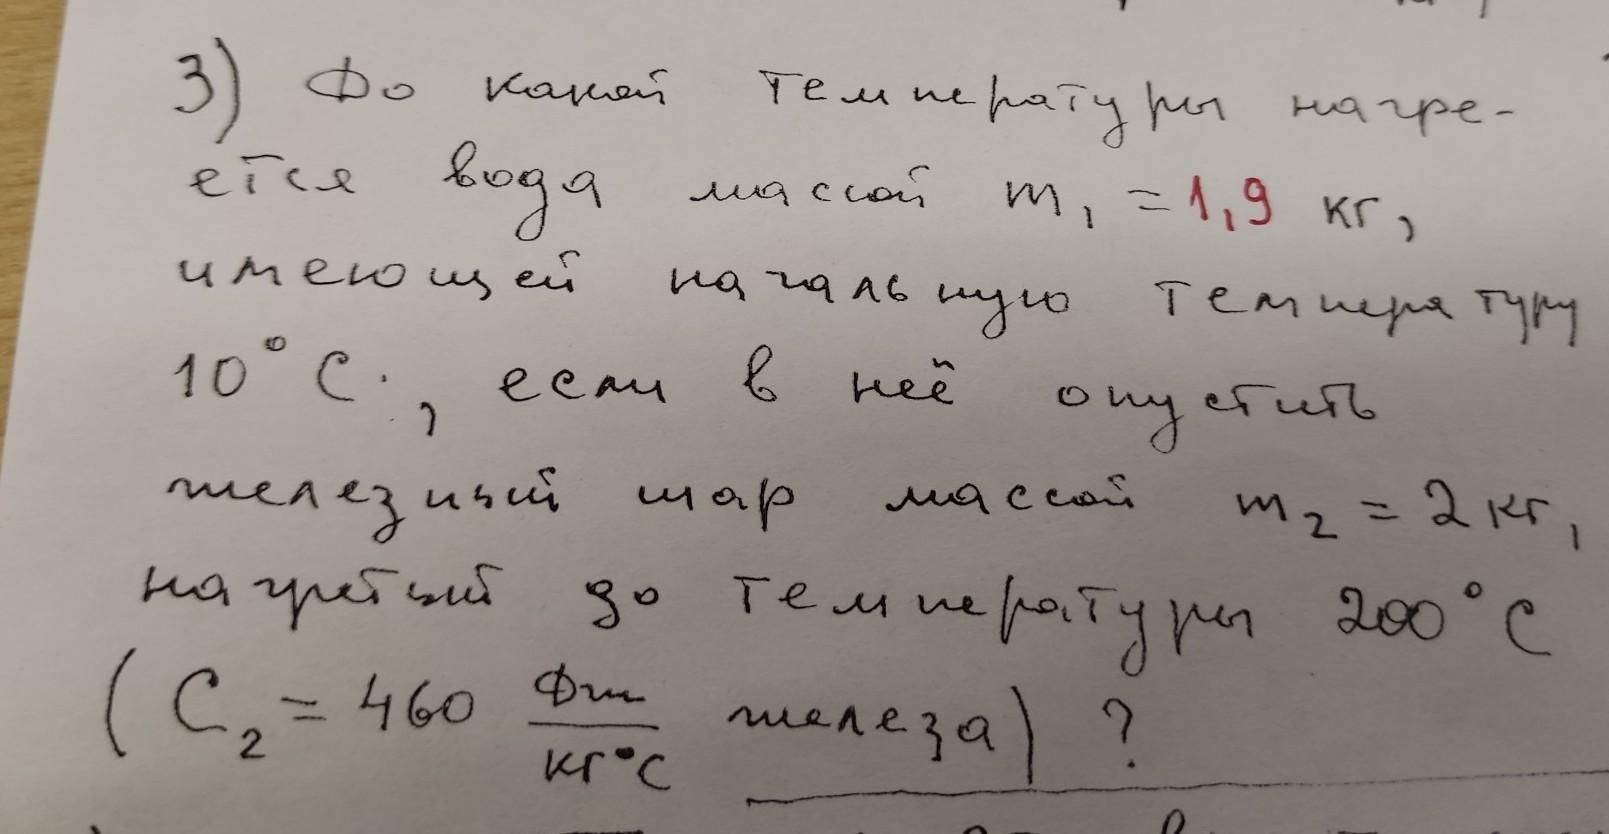 3) До какой температуры нагре-
ется вода массой m₁ = 1,9 кг,
имеющей начальную температуру
10°С., если в неё опустить
железный шар массой m₂ = 2 кг,
нагретый до температуры 200°С
(С₂ = 460 Дж/кг°С железа) ?